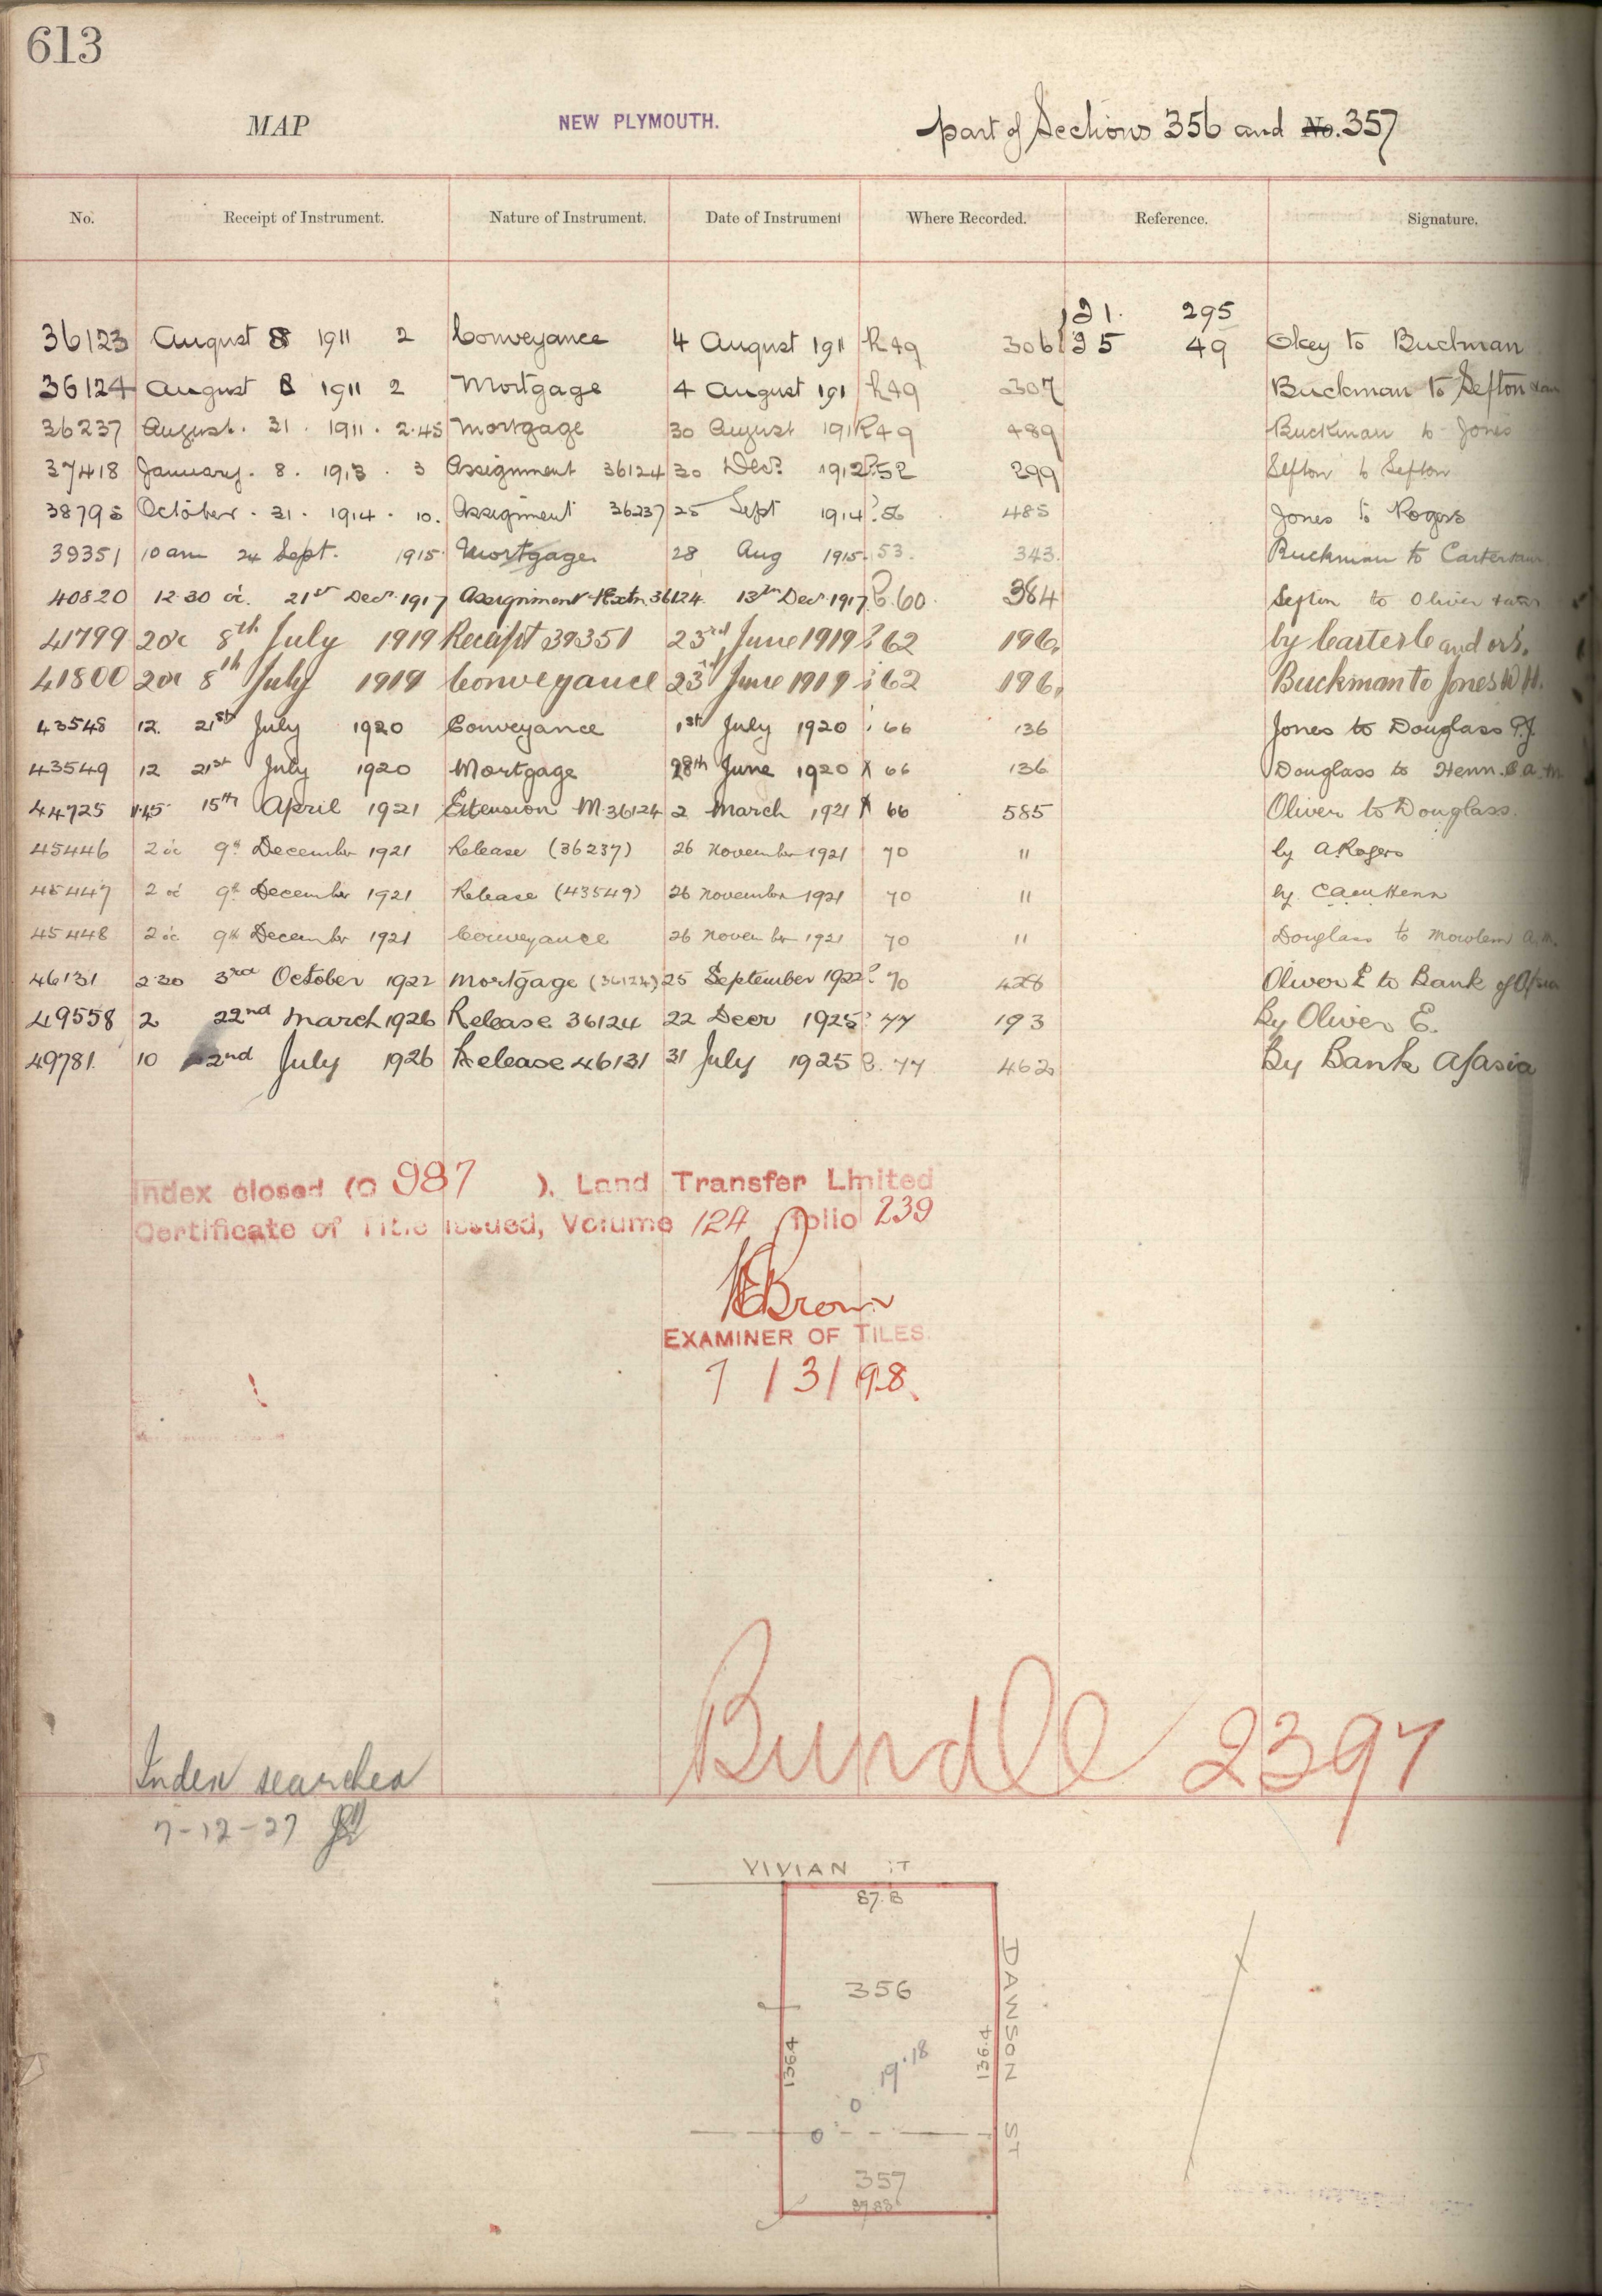 613
MAP NEW PLYMOUTH. part of Sections 356 and No. 357
No. Receipt of Instrument. Nature of Instrument. Date of Instrument Where Recorded. Reference. Signature.
21. 295
36123 August 8 1911 2 Conveyance 4 August 1911 R49 306 35 49 Okey to Buckman
36124 August 8 1911 2 Mortgage 4 August 191 R49 307 Buckman to Sefton
36237 August. 31. 1911. 2.45 Mortgage 30 August 191 R49 489 Buckman to Jones
37418 January. 8. 1913. 3 Assignment 36124 30 Decr 1912 52 299 Sefton to Sefton
38795 October. 31. 1914. 10. Assignment 36237 25 Sept 1914 56 485 Jones to Rogers
39351 10 am 24 Sept. 1915 Mortgage 28 Aug 1915 53. 343. Buckman to Carter
40820 12.30 oc. 21st Decr 1917 Assignment & Extn 36124 13th Dec 1917 60 384 Sefton to Oliver
41799 2 oc 8th July 1919 Receipt 39351 23rd June 1919 62 196. by Carter C and ors.
41800 2 oc 8th July 1919 Conveyance 23rd June 1919 62 196. Buckman to Jones W H.
43548 12. 21st July 1920 Conveyance 1st July 1920 66 136 Jones to Douglass P.J.
43549 12 21st July 1920 Mortgage 28th June 1920 66 136 Douglass to Henn. C.A.M
44725 11.45 15th April 1921 Extension M.36124 2 March 1921 66 585 Oliver to Douglass.
45446 2 oc 9th December 1921 Release (36237) 26 November 1921 70 11 by A Rogers
45447 2 oc 9th December 1921 Release (43549) 26 November 1921 70 11 by C A M Henn
45448 2 oc 9th December 1921 Conveyance 26 November 1921 70 11 Douglass to Mowlem A.M.
46131 2.30 3rd October 1922 Mortgage (36124) 25 September 1922 70 428 Oliver E to Bank of A/sia
49558 2 22nd March 1926 Release 36124 22 Decr 1925 77 193 By Oliver E.
49781. 10 2nd July 1926 Release 46131 31 July 1925 77 462 By Bank A/asia
Index closed (O 987 ). Land Transfer Limited
Certificate of Title issued, Volume 124, folio 239
Brown
EXAMINER OF TILES.
7/3/98.
Bundle 2397
Index searched
7-12-27
VIVIAN ST
87.8
356
DAWSON ST
136.4
136.4
19.18
0
0
357